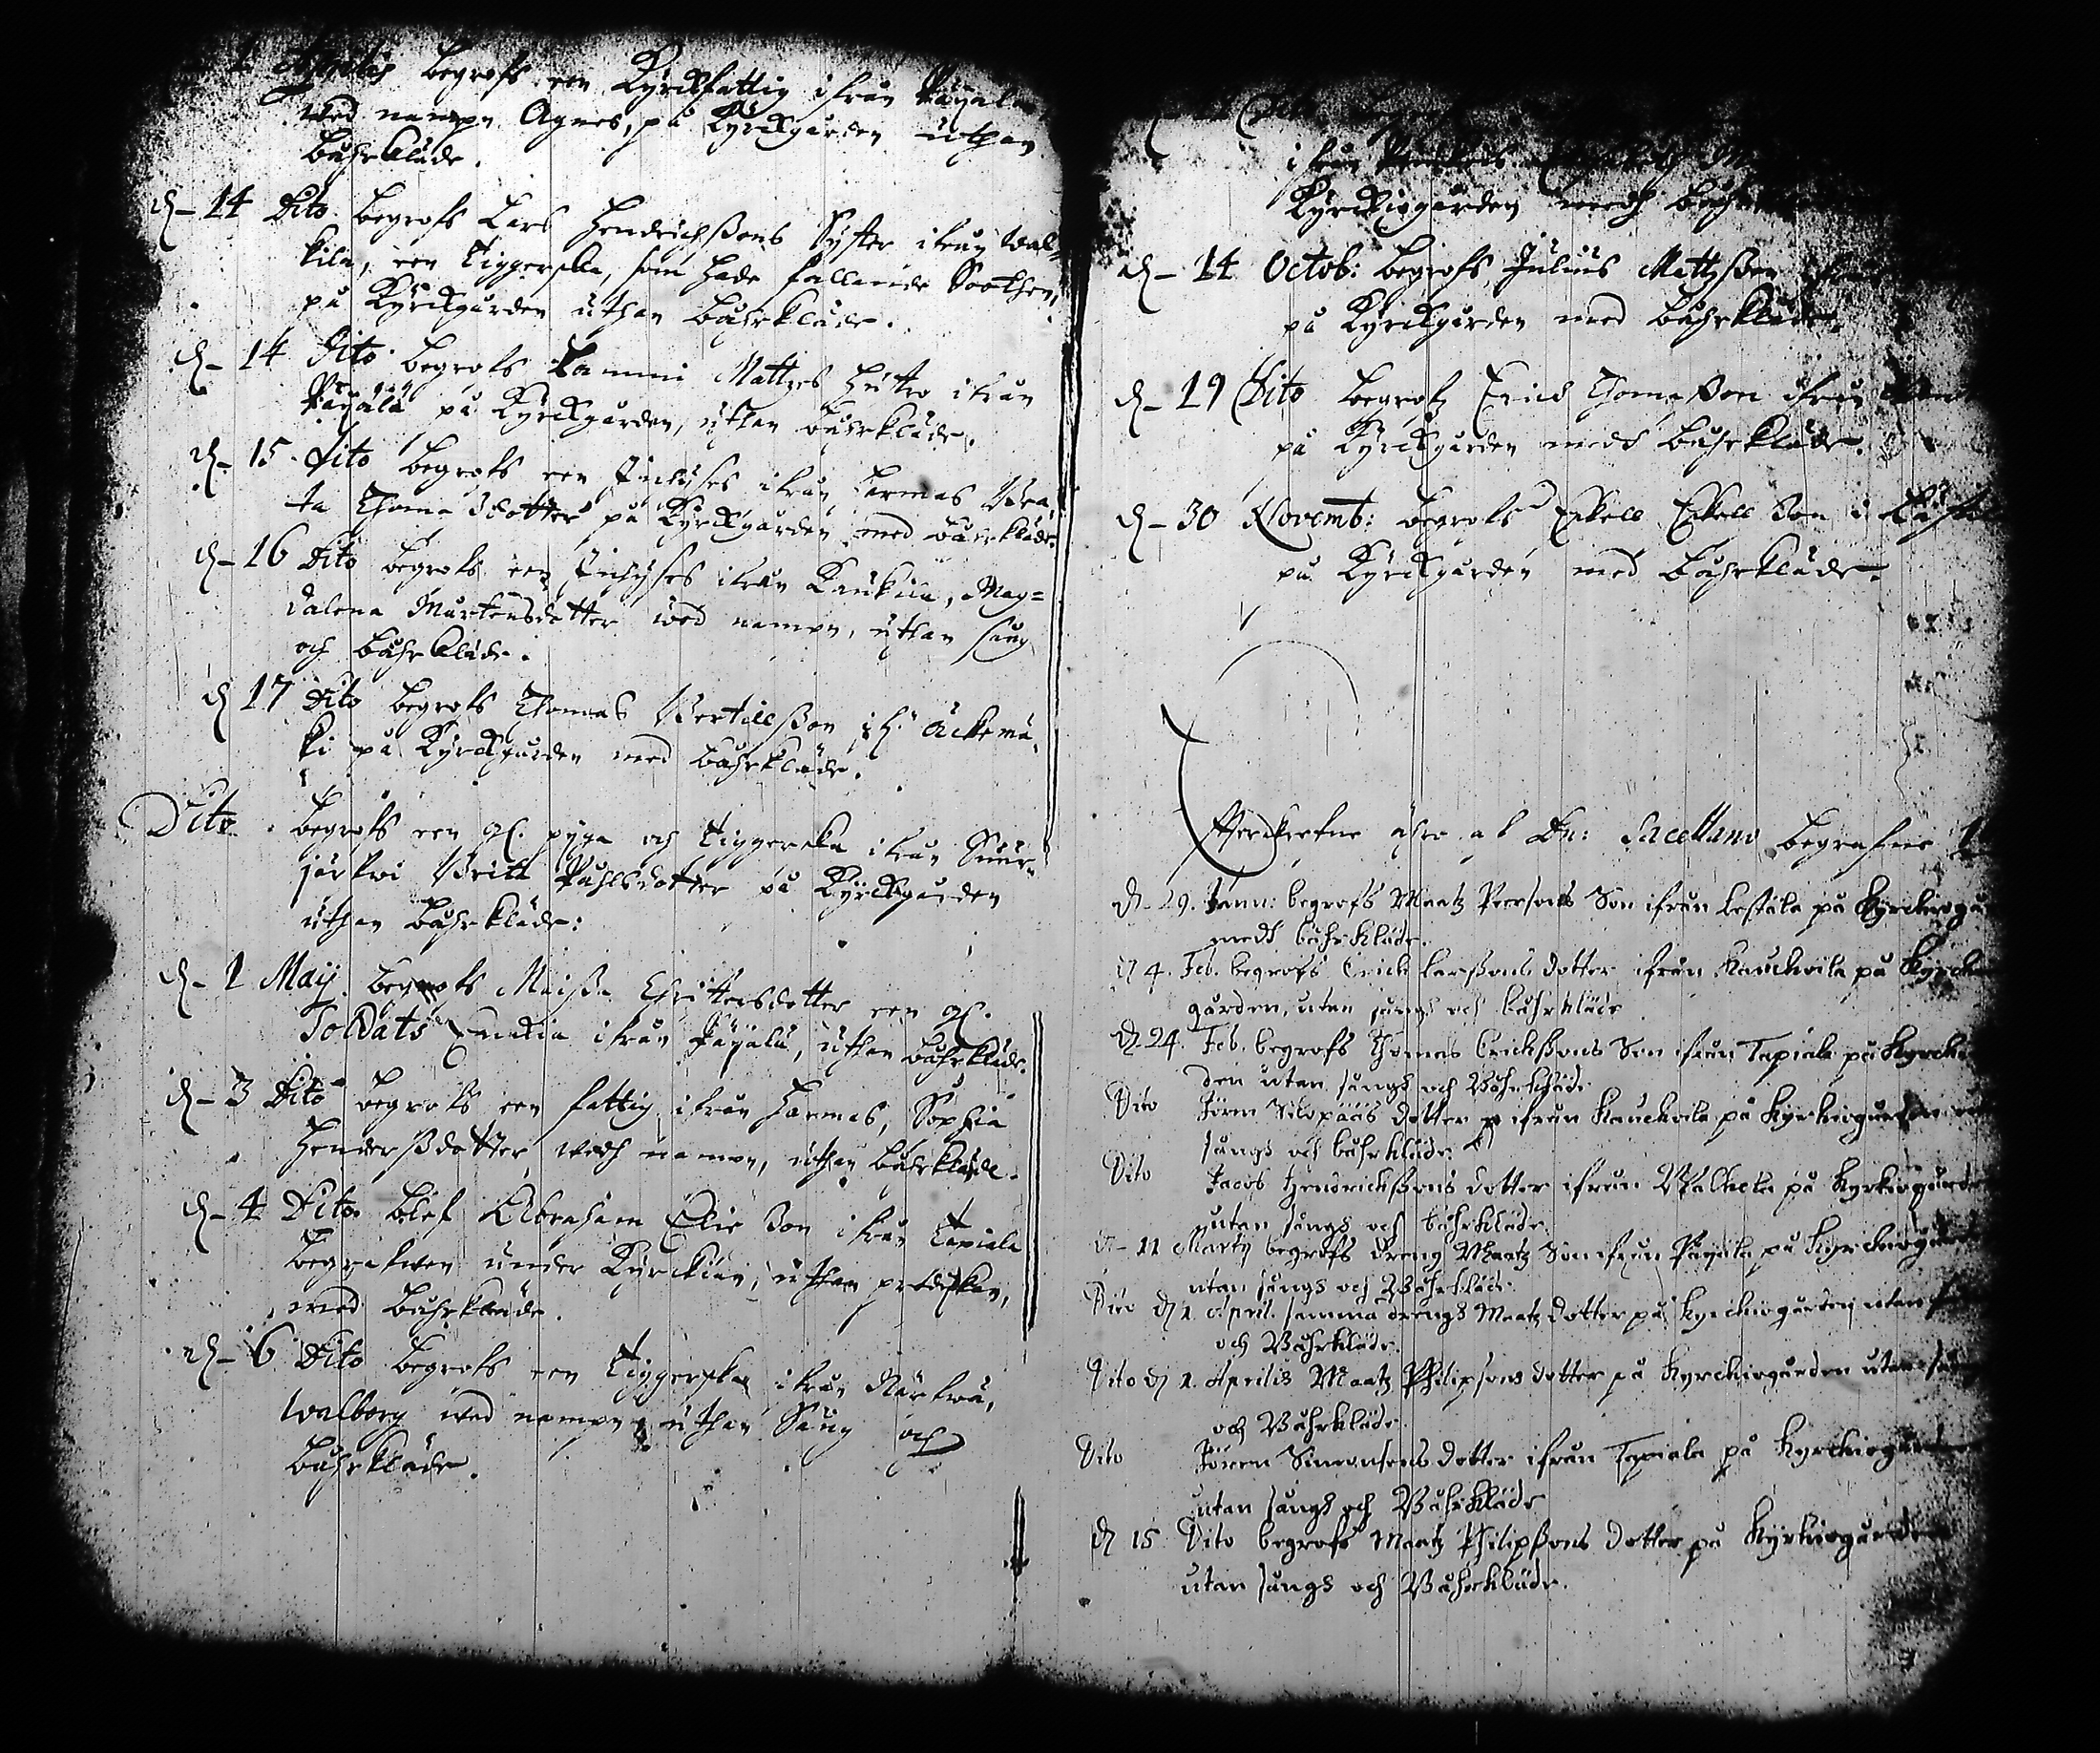 Aprilis begrofs een Kyrckfattig ifrån Päyälä
wed nampn Agnes, på Kyrckgården uthan
Båhrkläde.
d_ 14 Dito begrofs Lars Hendrichßons Syster ifrån Wal-
kila, een Tiggerska, som hade fallande Soothen,
på Kyrckgården uthan Båhrkläde.
d_ 14 Dito begrofs Tammi Mattzes Hustro ifrån
Päyälä på Kyrckgården, uthan Båhrkläde.
d_ 15 Dito begrofs een Inhyses ifrån Harmas Brita
Thomasdotter på Kyrckgården med Båhrkläde.
d_ 16 Dito begrofs een Inhyses ifrån Kaukila, Mag=
dalena Mårtensdotter wed nampn, uthan sång
och Båhrkläde.
d 17 Dito begrofs Thomas Bertilßon if. Äckemä-
ki på Kyrckgården med Båhrkläde.
Dito begrofs een gl. pyga och Tiggerska ifrån Suur-
järfwi Britt Påhlsdotter på Kyrckgården
uthan Båhrkläde:
d_ 1 Maij begrofs Maisa Christersdotter een gl.
Soldats Enckia ifrån Päyälä, uthan Båhrkläde.
d_ 3 Dito begrofs een fattig ifrån Harmas, Sophia
Hendersßdotter wedh nampn, uthan Båhrkläde.
d_ 4 Dito blef Abraham Elie Son ifrån Tapiala
begrafwen under Kyrckian, uthan predikan,
med Båhrkläde.
d_ 6 Dito begrofs een Tiggerska ifrån Närfwä,
Walborg wed nampn, uthan Sång och
Båhrkläde.
Dito
ifrån
Kyrckiogården medh Båhr
d_ 14 Octob: begrofs Julius Mattzßon ifrån
på Kyrckgården med Båhrkläde.
d_ 19 Dito begrofs Erich Thomaßon ifrån
på Kyrckgården medh Båhrkläde.
d_ 30 Novemb: begrofs Eskell Eskellßon i
på Kyrckgården med Båhrkläde.
Effterskrefne ähro af Dn: Sacellano begrafne
d_ 29. Jann: begrofs Maatz Peersons Son ifrån Lestälä på Kyrckiogå
medh båhrkläde.
d 4. Feb. begrofs Erich Larßons dotter ifrån Kauckoila på Kyrckio
gården, utan sångh och båhrkläde
d. 24. Feb. begrofs Thomas Erickßons Son ifrån Tapiala på Kyrckio
den utan sångh och Båhrkläde
Dito Jören Silopääs dotter ifrån Kauckoila på Kyrkiogården
sångh och båhrkläde
Dito Jacob Hendrickßons dotter ifrån Walkila på Kyrkiogårde
utan sångh och båhrkläde
d_ 11 Martij begrofs Dreng Maatz Son ifrån Päyälä på Kyrckiogård
utan sångh och Båhrkläde.
Dito d 1. April. samma drengs Maatz dotter på Kyrckiogården utan
och Båhrkläde.
Dito d 1. Aprilis Maatz Philipsons dotter på Kyrckiogården utan sång
och Båhrkläde
Dito Jören Simonsons dotter ifrån Tapiala på Kyrckiogården
utan sångh och Båhrkläde
d 15 Dito begrofs Maatz Philipßons dotter på Kyrkiogården
utan sångh och Båhrkläde.